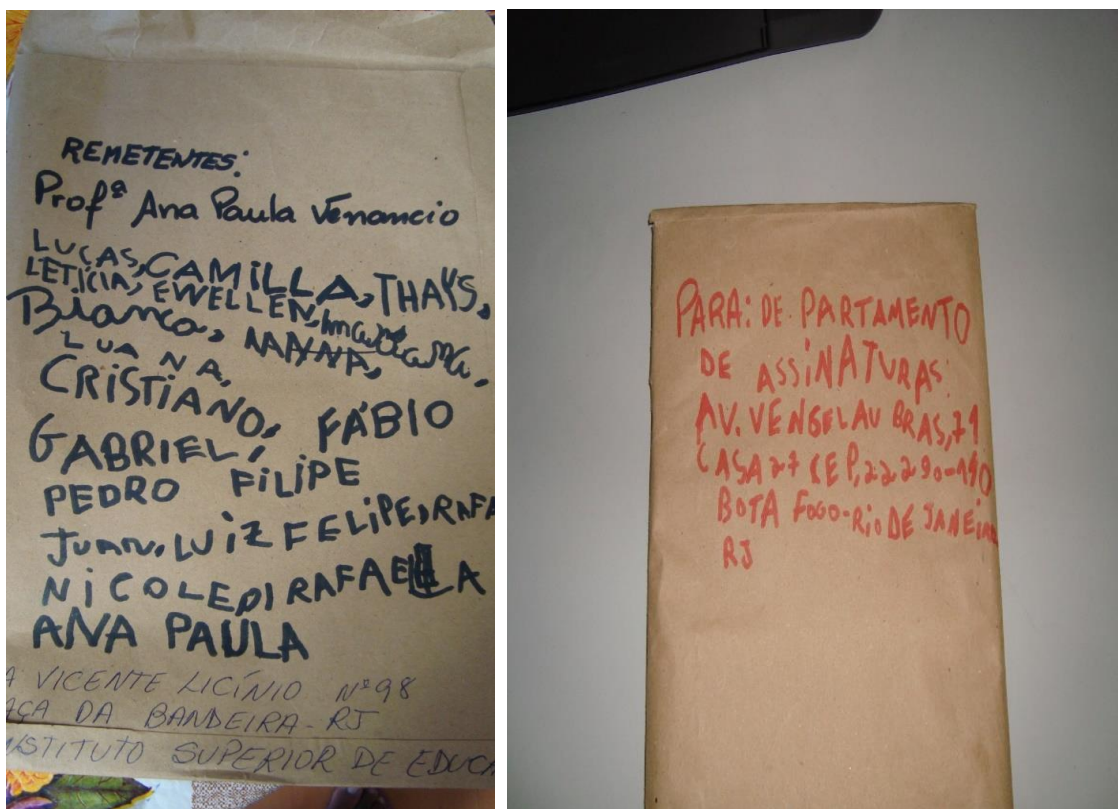 REMETENTES:
Profª Ana Paula Venancio
LUCAS, CAMILLA, THAYS,
LETICIA, EWELLEN,
Bianca,
LUANA,
CRISTIANO, FÁBIO
GABRIEL,
PEDRO FILIPE
Juan, LUIZ FELIPE, RAFA
NICOLE, RAFAELLA
ANA PAULA
A VICENTE LICÍNIO Nº 98
AÇA DA BANDEIRA - RJ
NSTITUTO SUPERIOR DE EDUCA
PARA: DE PARTAMENTO
DE ASSINATURAS:
AV. VENGELAU BRAS, 71
CASA 27 CEP, 22290-140
BOTA FOGO-RIO DE JANEIRO
RJ